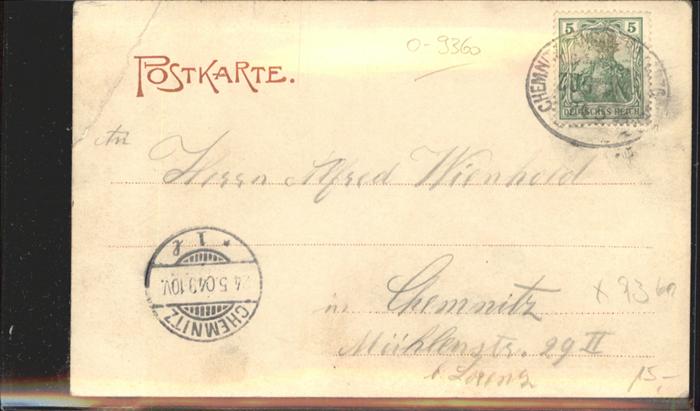 5 5
DEUTSCHES REICH
CHEMN
0-9360
POSTKARTE.
An
Herrn Alfred Wienhold
* 1 l
4.5.04.9-10V.
CHEMNITZ
in Chemnitz
x 9360
Mühlenstr. 29 II
b Lorenz
15,-